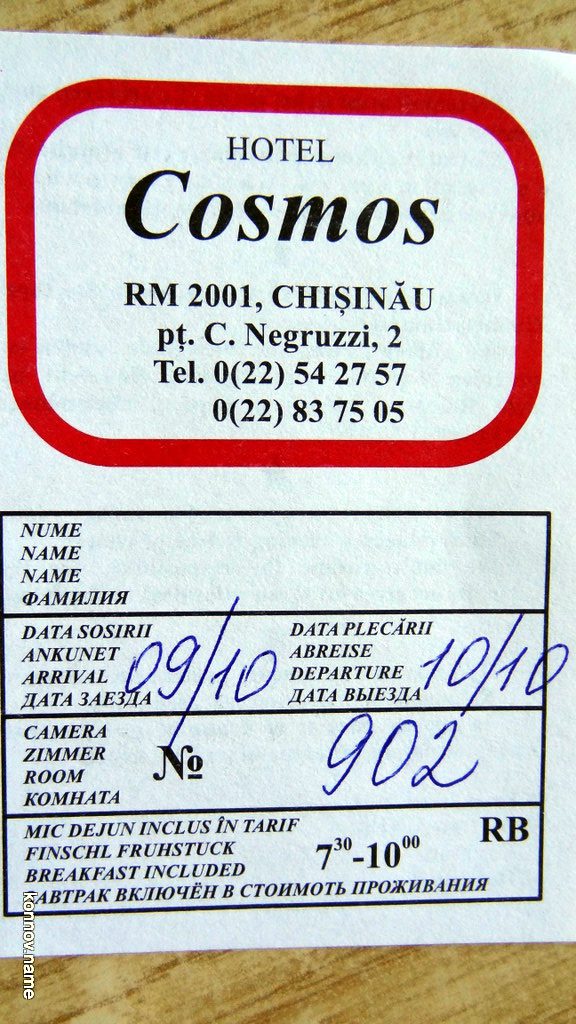 HOTEL
Cosmos
RM 2001, CHIȘINĂU
pț. C. Negruzzi, 2
Tel. 0(22) 54 27 57
0(22) 83 75 05
NUME
NAME
NAME
ФАМИЛИЯ
DATA SOSIRII
ANKUNET
ARRIVAL
ДАТА ЗАЕЗДА
09/10
DATA PLECĂRII
ABREISE
DEPARTURE
ДАТА ВЫЕЗДА
10/10
CAMERA
ZIMMER
ROOM
КОМНАТА
№ 902
MIC DEJUN INCLUS ÎN TARIF
FINSCHL FRUHSTUCK
BREAKFAST INCLUDED
ЗАВТРАК ВКЛЮЧЁН В СТОИМОТЬ ПРОЖИВАНИЯ
7³⁰-10⁰⁰
RB
konnov.name